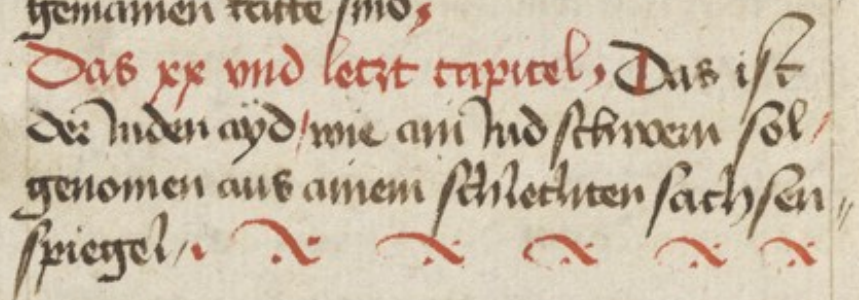 gemainen leutte sind
Das xx vnd letzt capitel, Das ist
der Juden ayd / wie ain Jud schwern sol /
genomen aus ainem schlechten sachsen〃
spiegel /.